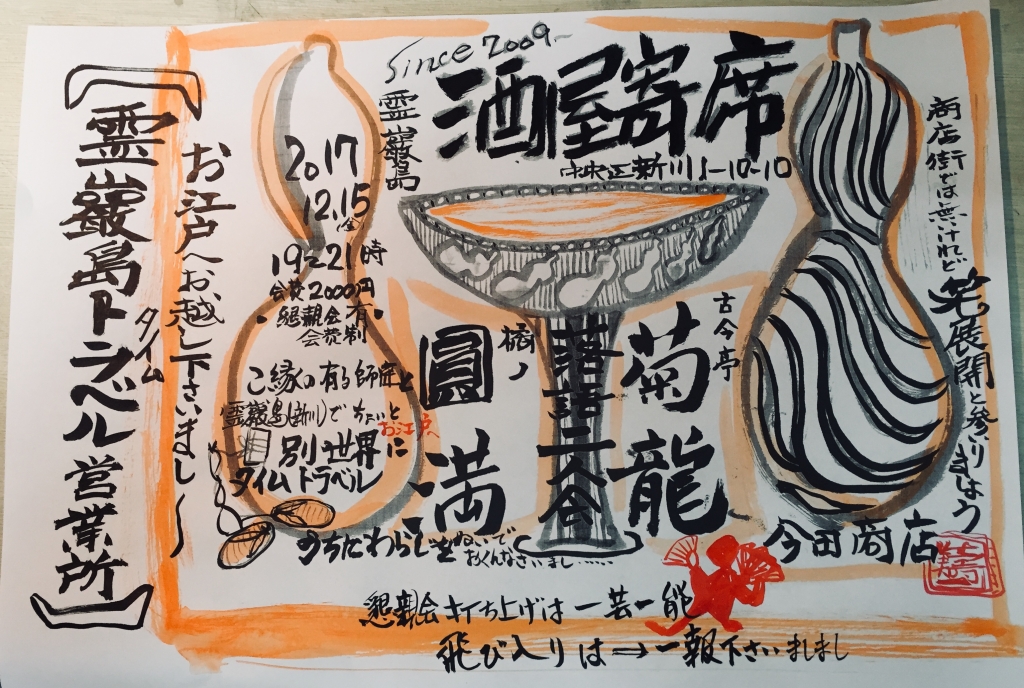 Since 2009~
霊巌島
酒屋寄席
中央区新川1-10-10
商店街では無けれど
笑展開と参りましょう
2017
12.15
(金)
19~21時
会費2000円
・懇親会有
会費制
古今亭
菊龍
落語二人会
橘ノ
圓満
ご縁の有る師匠と
霊巌島(新川)でちょいと
お江戸へ
別世界に
タイムトラベル
うちだわらじをぬいで
おくんなさいまし……
お江戸へお越し下さいまし~
【霊巌島トラベル営業所】
タイム
今田商店
懇親会打ち上げは一芸一能
飛び入りは→一報下さいましまし